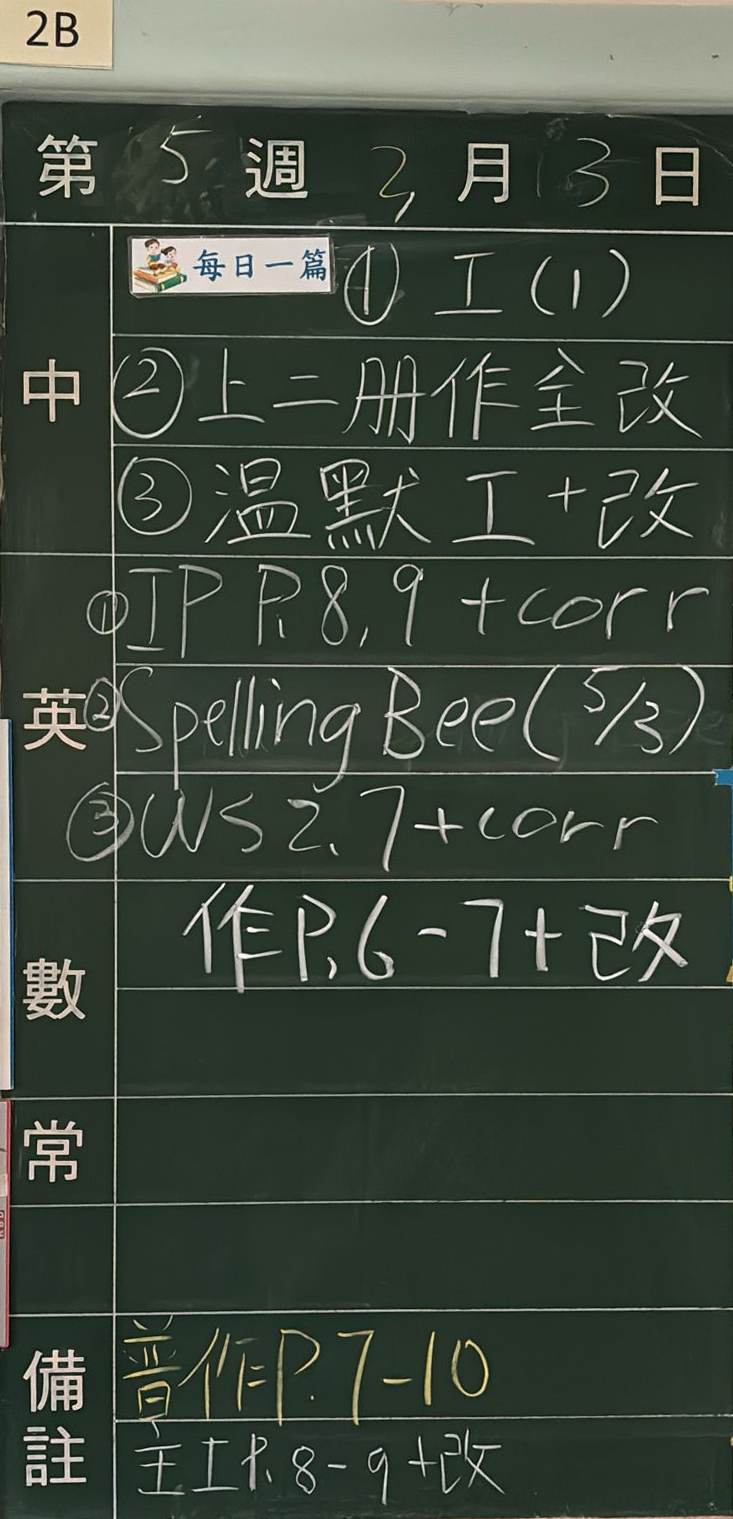 2B
第 5 週 2 月 13 日
中
每日一篇 ① 工(1)
② 上二册作全改
③ 溫默工+改
英
① IP P.8, 9 +corr
② Spelling Bee (5/3)
③ WS 2, 7+corr
數
作P.6-7+改
常
備註
普作P.7-10
工P.8-9+改